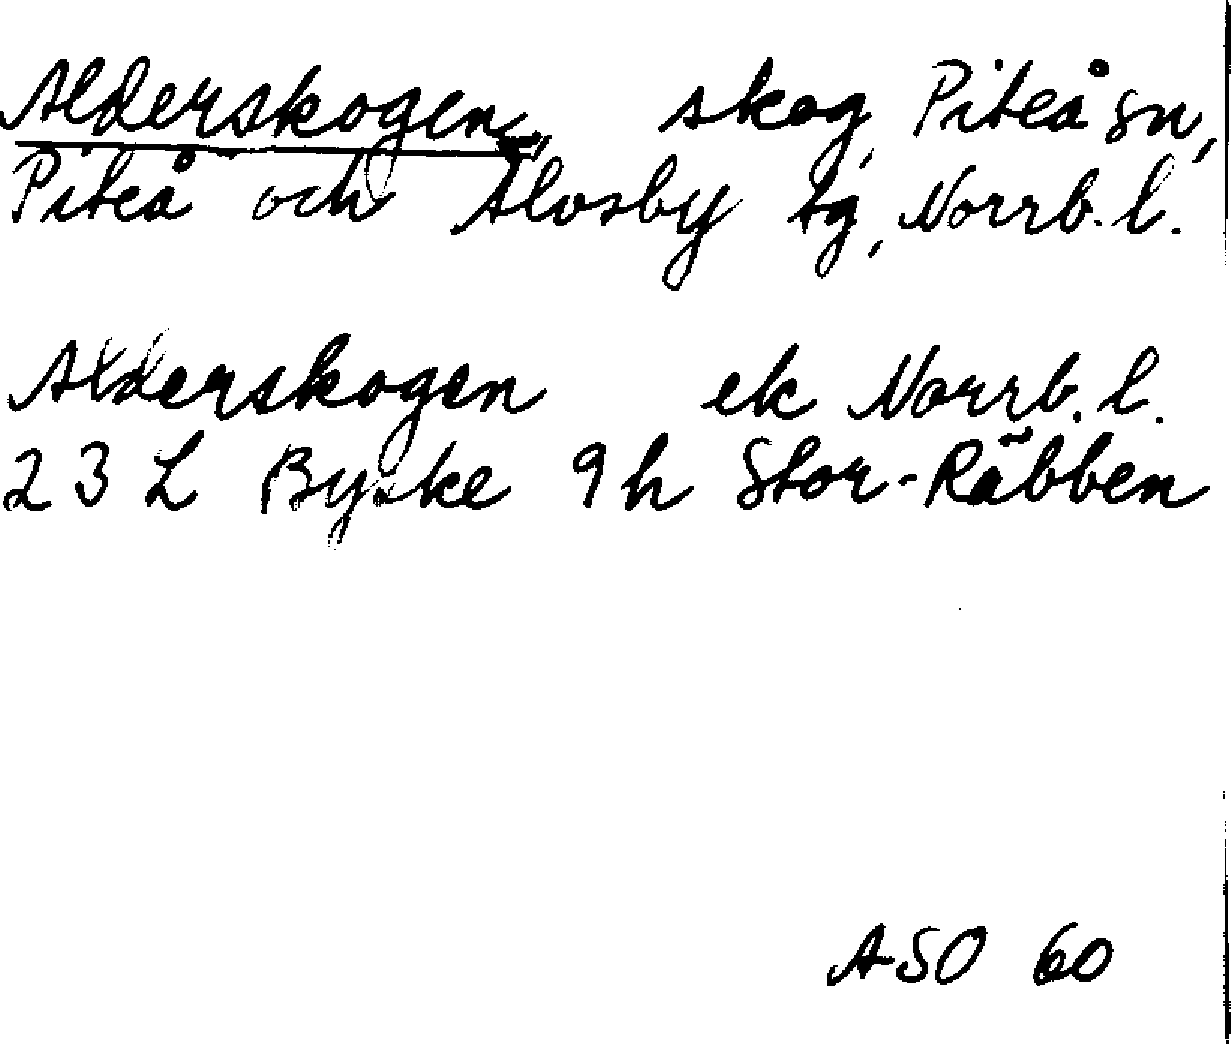 Alderskogen, skog, Piteå sn,
Piteå och Älvsby tg, Norrb. l.
Alderskogen ek Norrb. l.
23 L Byske 9 h Stor-Räbben
ASO 60